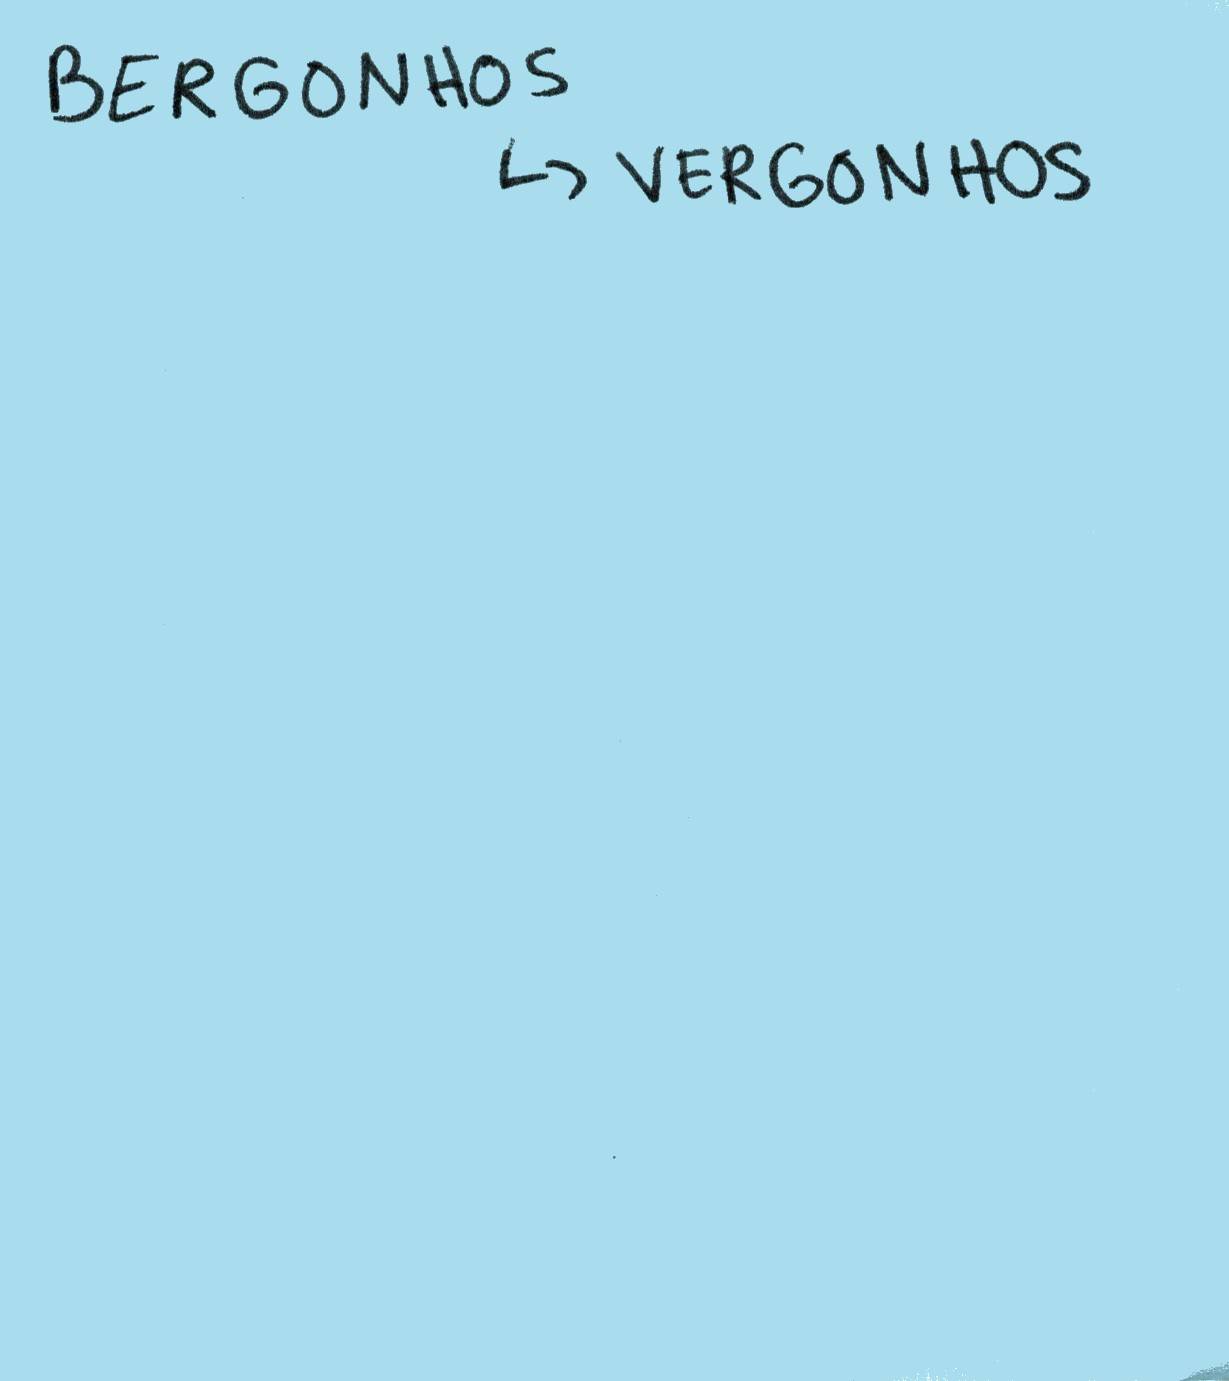 BERGONHOS
↳ VERGONHOS